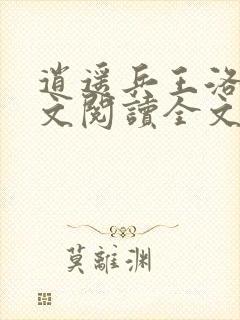 逍遥兵王洛
文閱讀全文
莫離渊